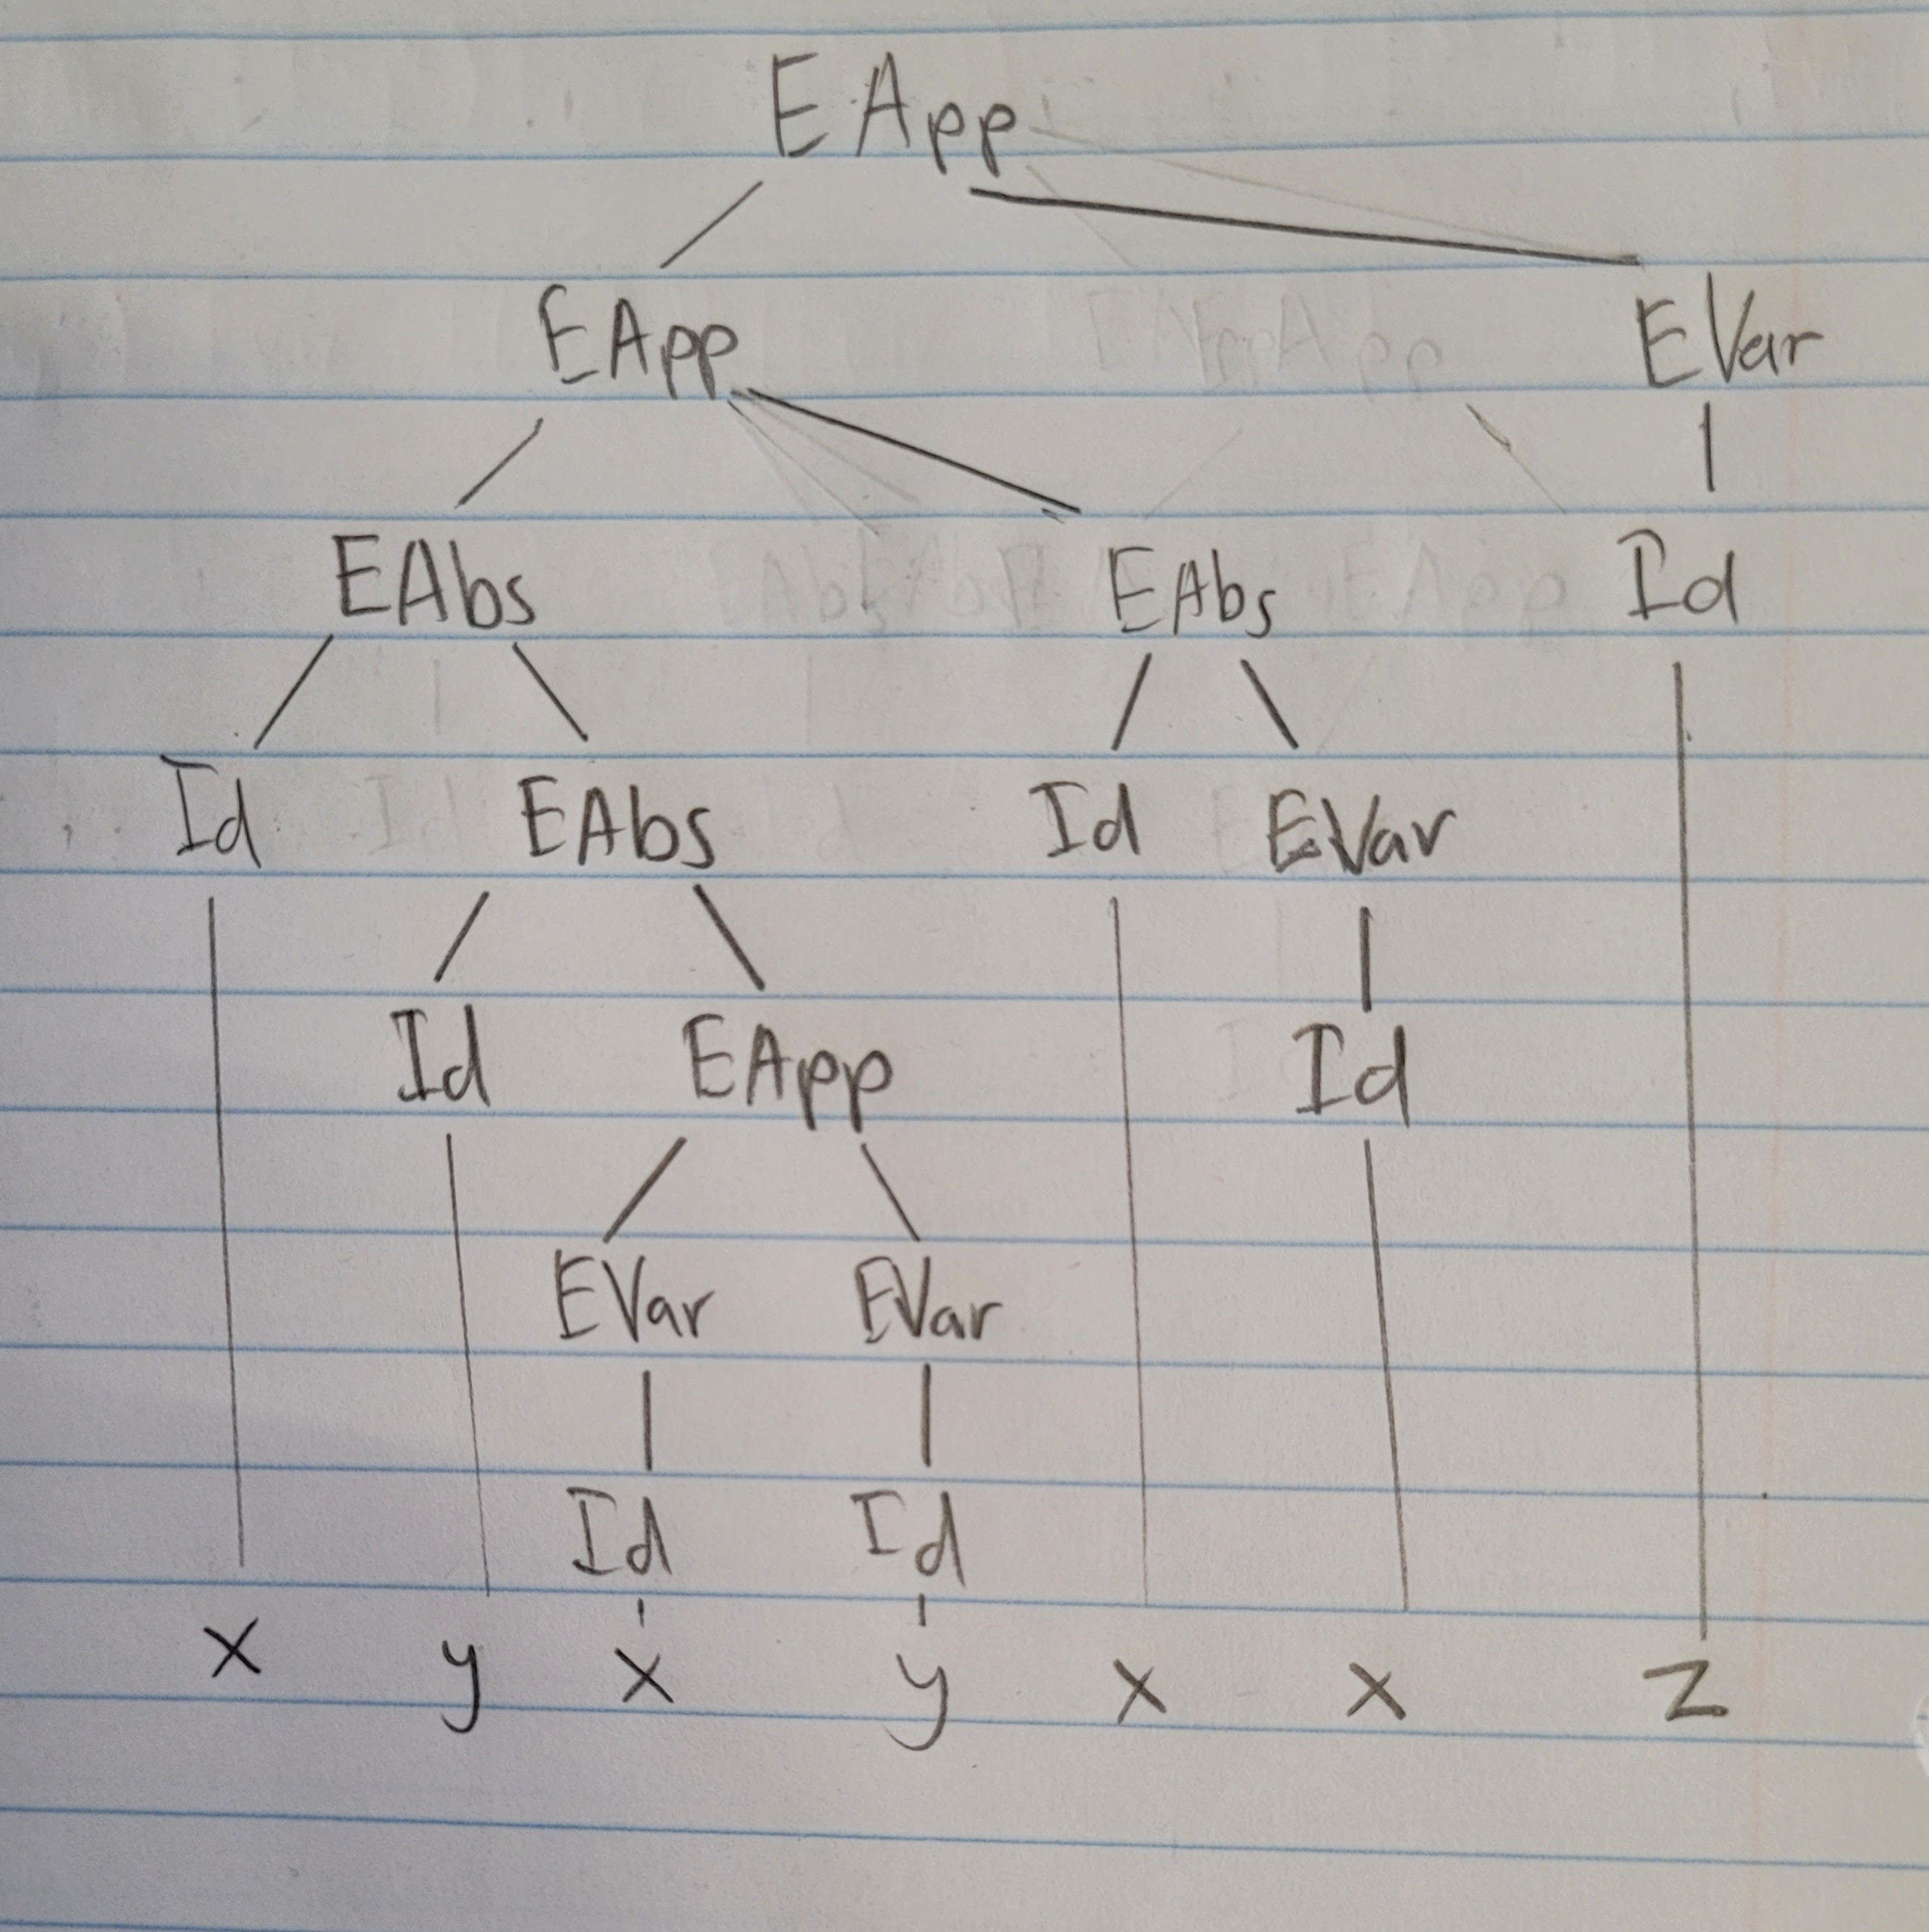 EApp
EApp EVar
EAbs EAbs Id
Id EAbs Id EVar
Id EApp Id
EVar EVar
Id Id
x y x y x x z